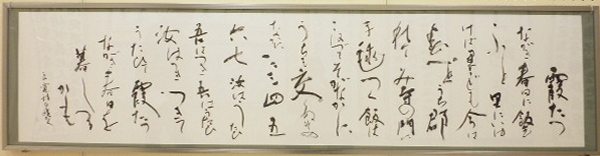 霞たつ
ながき春日に飯
こふと里にいゆ
けば里子ども今は
春べとうち群
れてみ寺の門に
手毬つく飯は
こはずてそがなかに
うちも交りぬその
なかに一二三四五
六七汝はうたひ
吾はつき吾はうたひ
汝はつきつきて
うたひて霞たつ
ながき春日を
暮しつる
かも